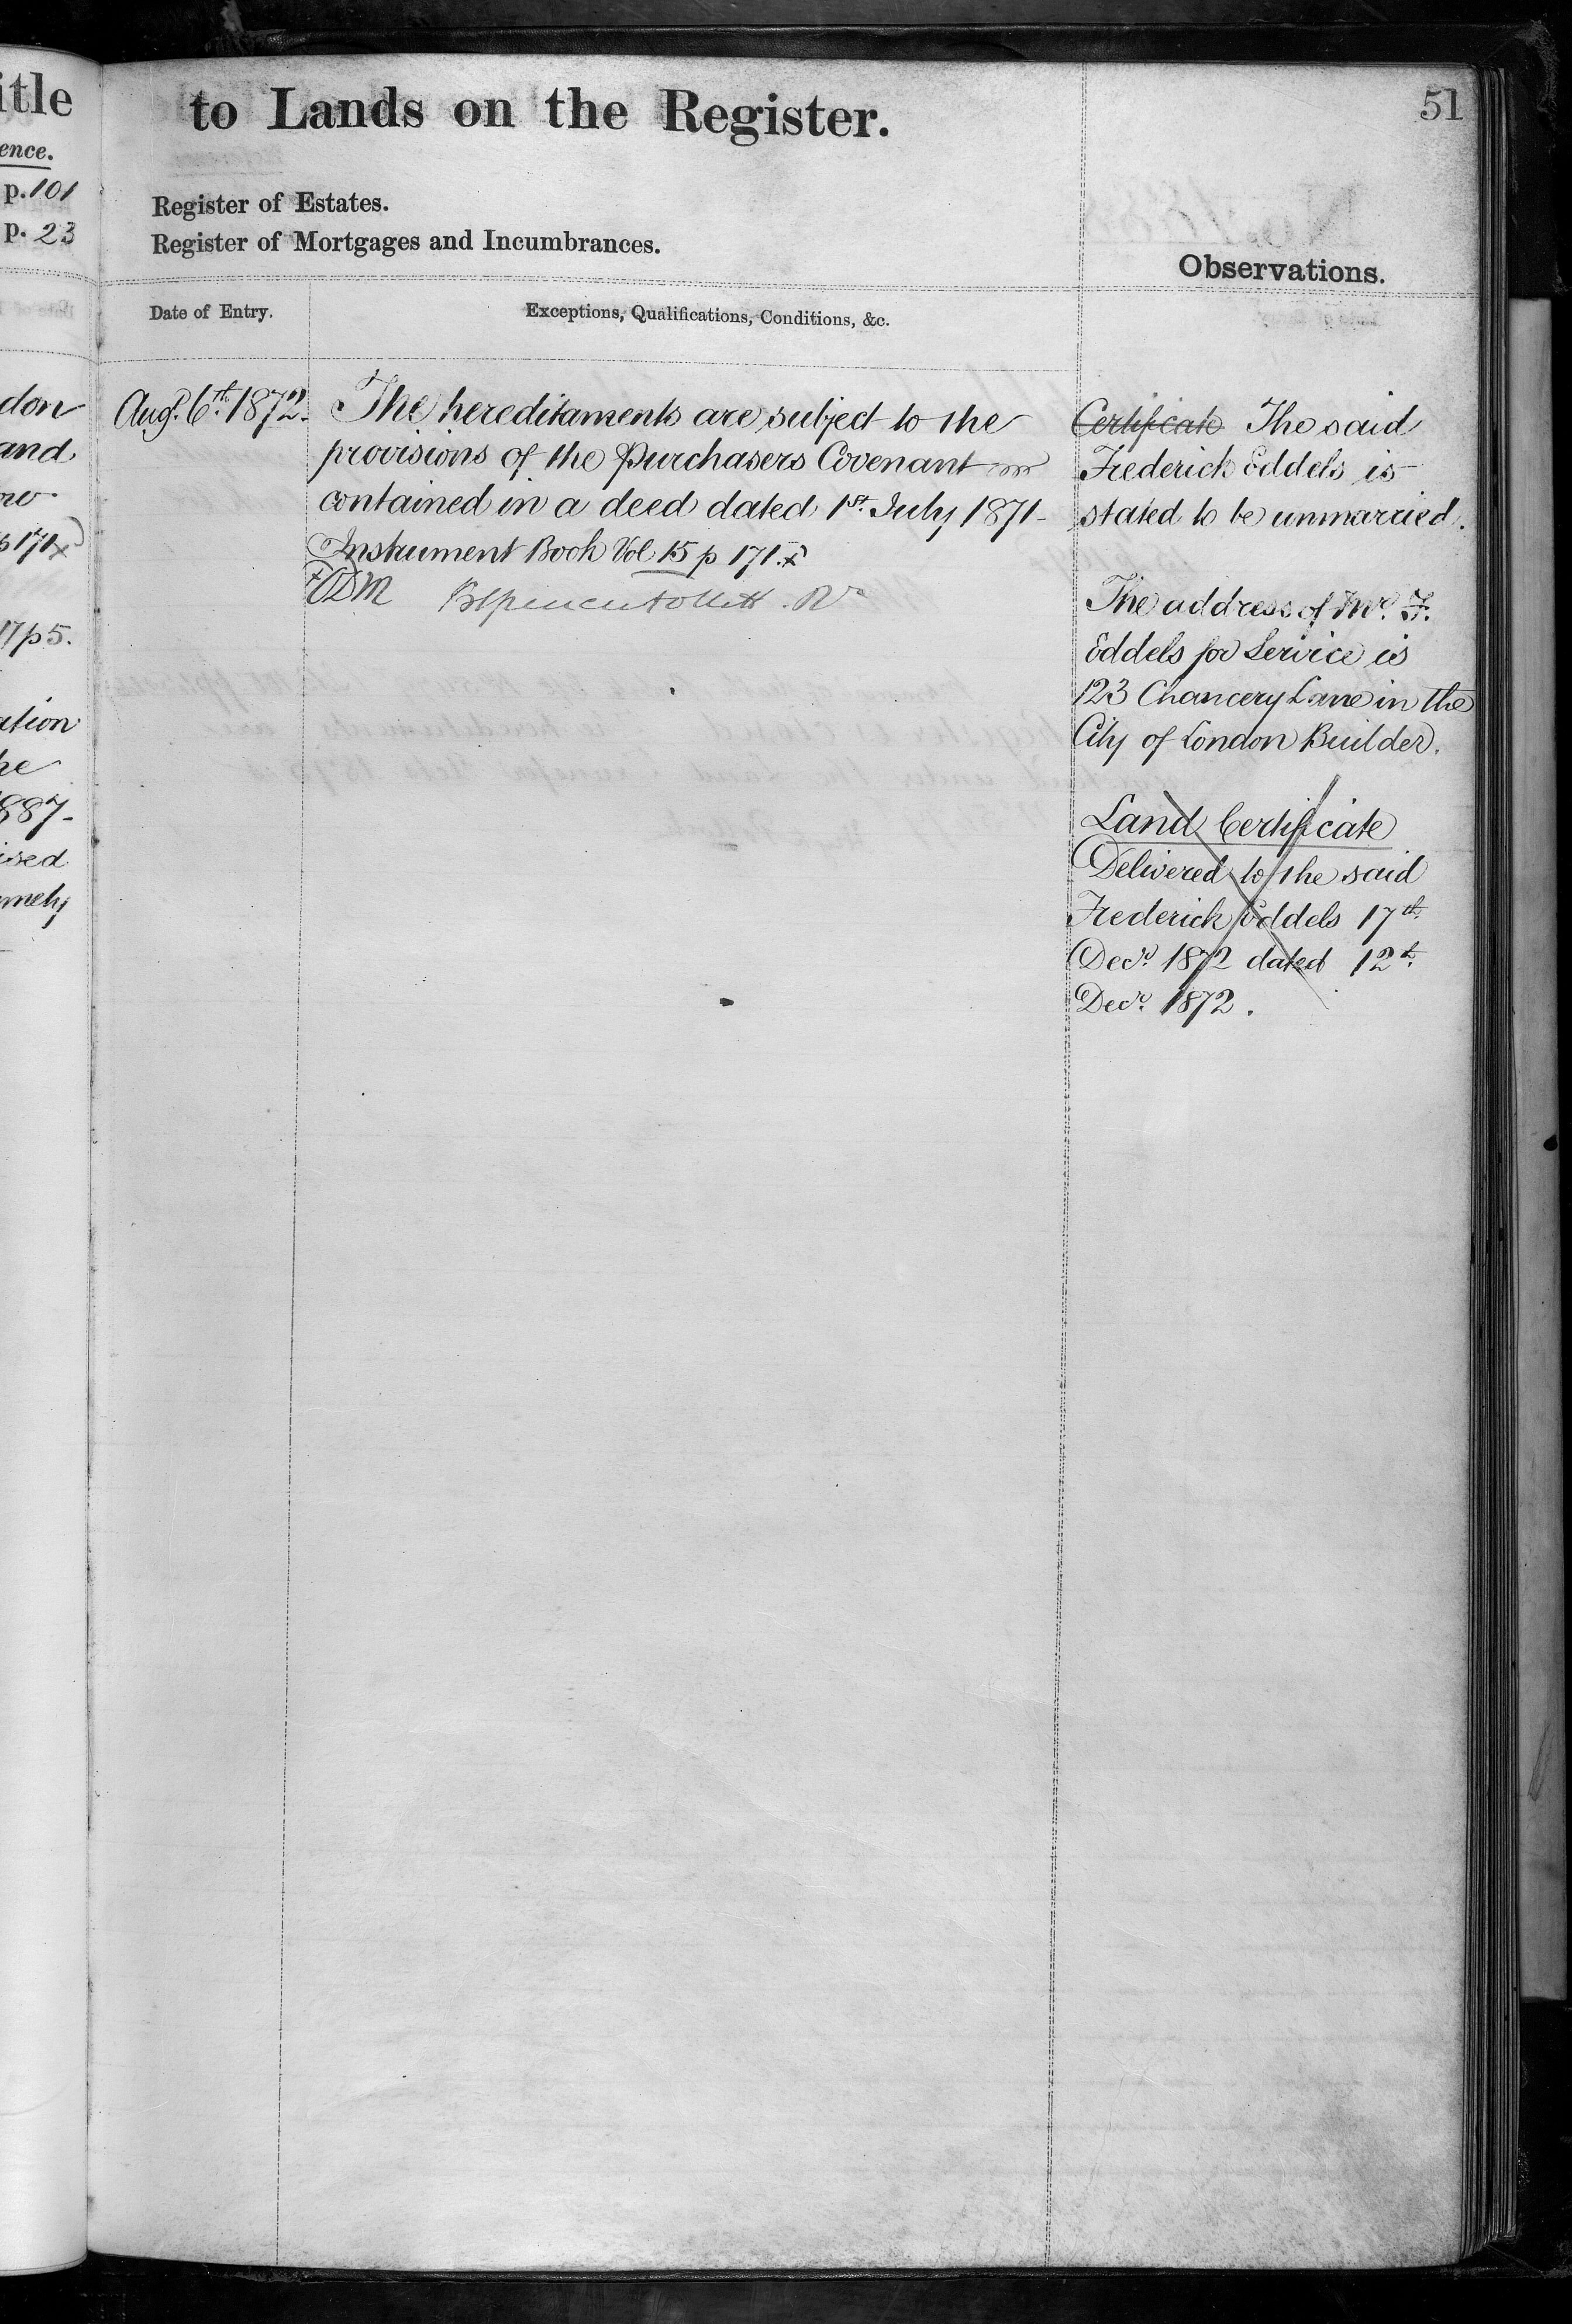 itle
ence.
p. 101
p. 23
don
and
p 171 x)
17 p 5.
ation
he
887-
ised
mely
to Lands on the Register.
51
Register of Estates.
Register of Mortgages and Incumbrances.
Observations.
Date of Entry.
Exceptions, Qualifications, Conditions, &c.
Augt. 6th. 1872.
The hereditaments are subject to the
provisions of the Purchasers Covenant
contained in a deed dated 1st. July 1871-
Instrument Book Vol 15 p 171. x
Certificate The said
Frederick Eddels is
stated to be unmarried.
The address of Mr. F.
Eddels for Service is
123 Chancery Lane in the
City of London Builder.
Land Certificate
Delivered to the said
Frederick Eddels 17th.
Decr. 1872 dated 12th.
Decr. 1872.